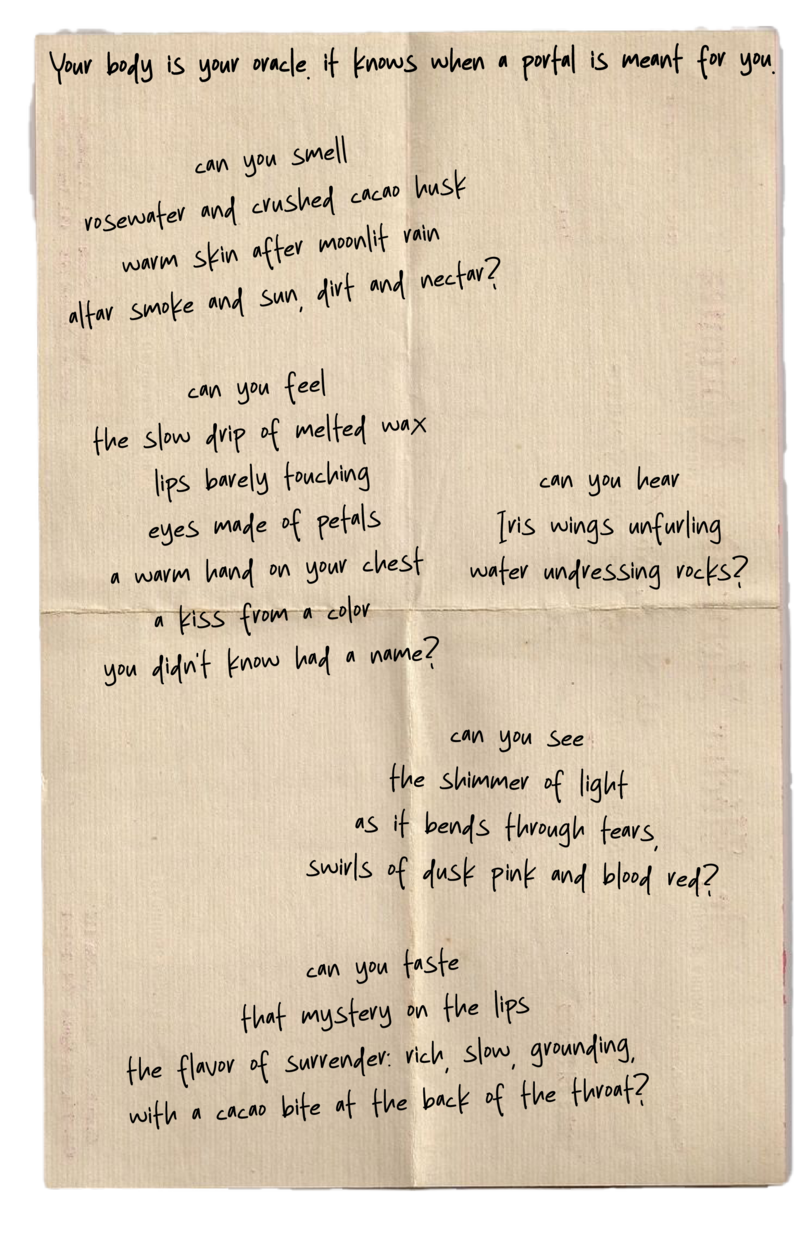 Your body is your oracle. it knows when a portal is meant for you.
can you smell
rosewater and crushed cacao husk
warm skin after moonlit rain
altar smoke and sun, dirt and nectar?
can you feel
the slow drip of melted wax
lips barely touching
eyes made of petals
a warm hand on your chest
a kiss from a color
you didn't know had a name?
can you hear
Iris wings unfurling
water undressing rocks?
can you see
the shimmer of light
as it bends through tears,
swirls of dusk pink and blood red?
can you taste
that mystery on the lips
the flavor of surrender: rich, slow, grounding,
with a cacao bite at the back of the throat?